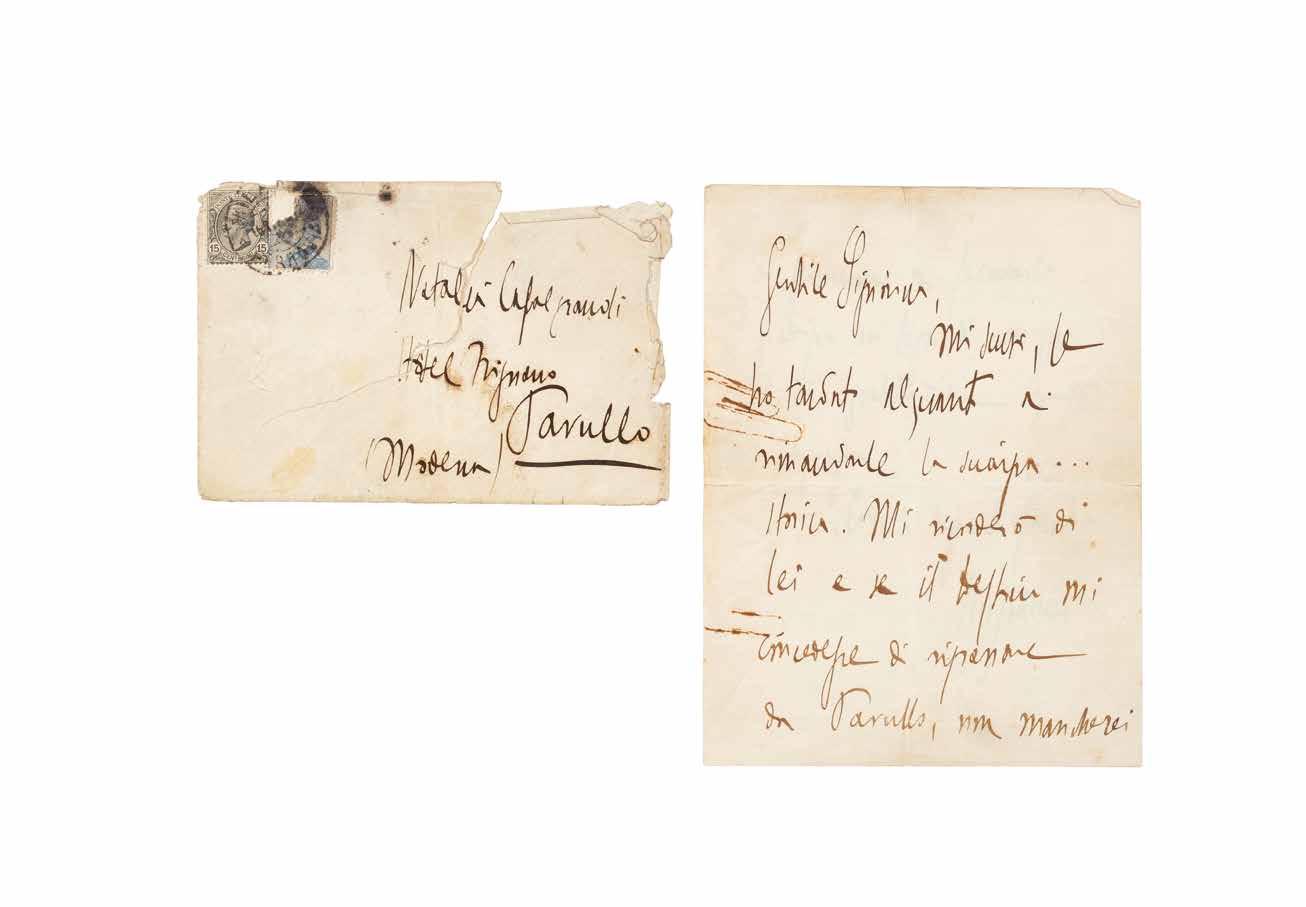 15 15
Natalia Casalgrandi
Hôtel Frignano
Pavullo
(Modena)
Gentile Signorina,
Mi scusi, se
ho tardato alquanto a
rimandarle la sciarpa...
storica. Mi ricorderò di
lei e se il destino mi
concedesse di ripassare
da Pavullo, non mancherei